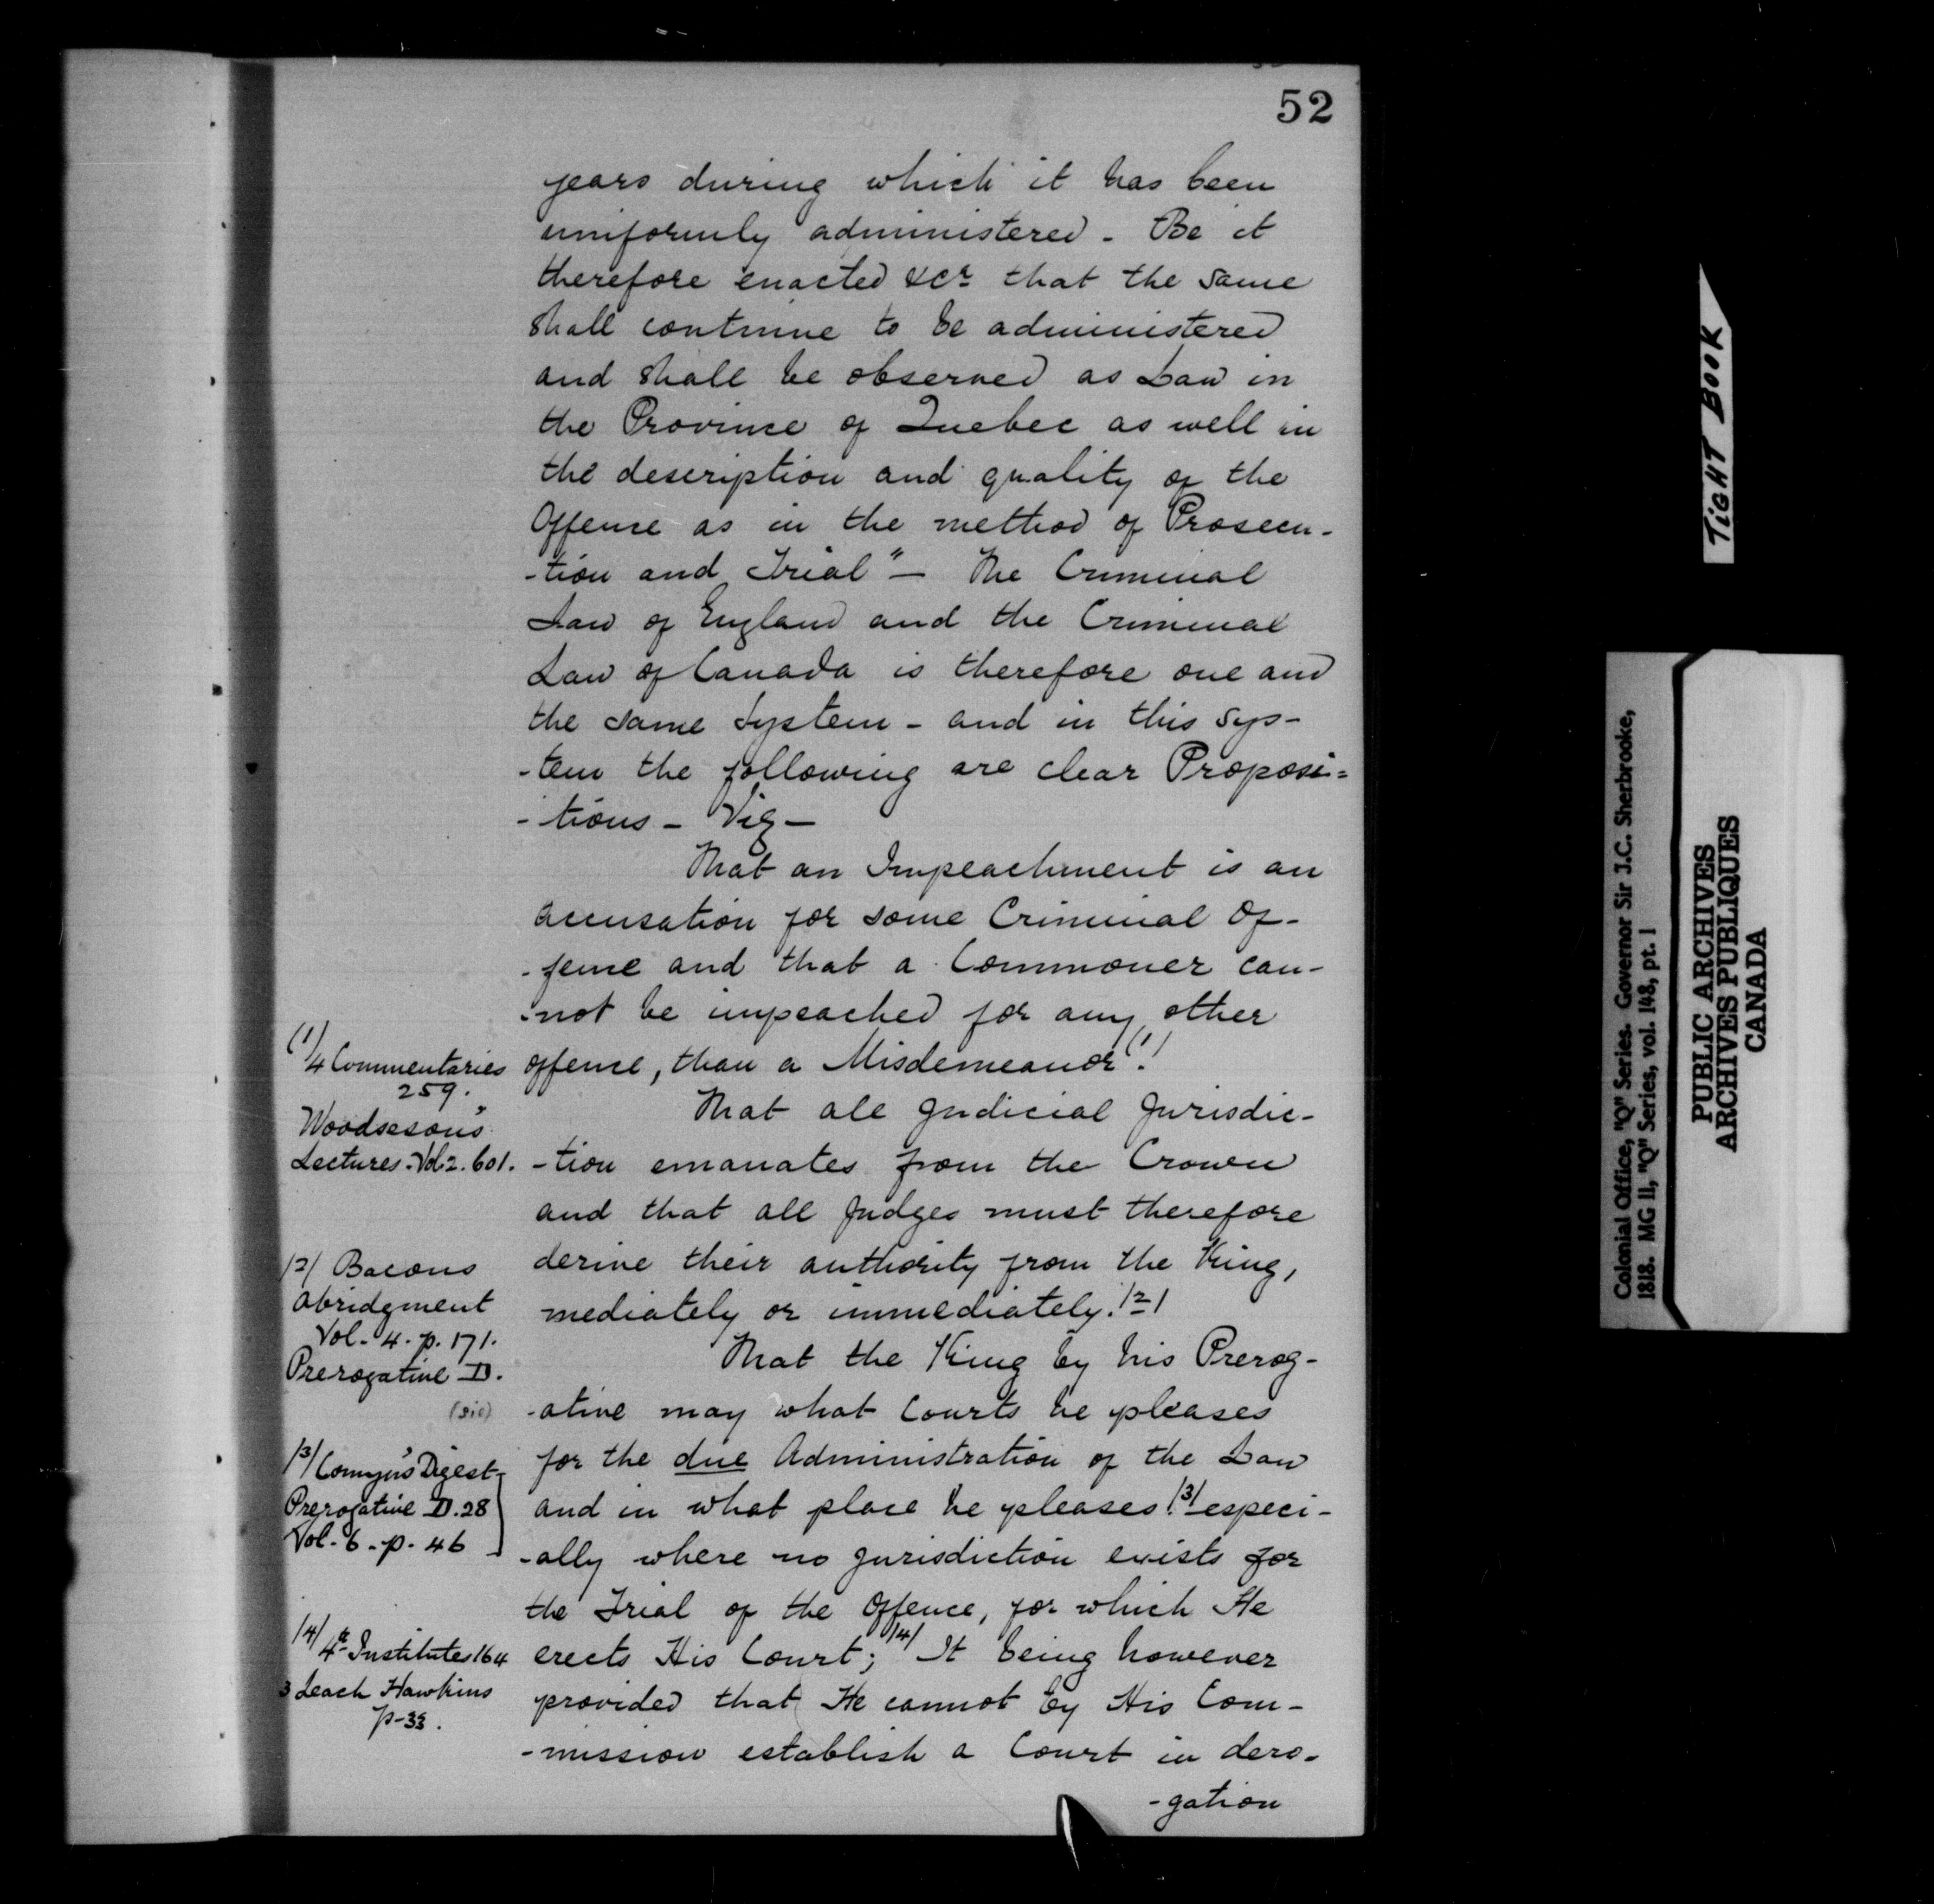 52
years during which it has been
uniformly administered - Be it
therefore enacted &cr that the same
shall continue to be administered
and shall be observed as Law in
the Province of Quebec as well in
the description and quality of the
Offence as in the method of Prosecu-
-tion and Trial" - The Criminal
Law of England and the Criminal
Law of Canada is therefore one and
the same System - and in this Sys-
-tem the following are clear Proposi=
-tions - Viz -
That an Impeachment is an
accusation for some Criminal Of-
-fence and that a Commoner can-
-not be impeached for any other
offence, than a Misdemeanor (1)
(1) 4 Commentaries
259.
Woodseson's
Lectures - Vol 2. 601.
That all Judicial Jurisdic-
-tion emanates from the Crown
and that all Judges must therefore
derive their authority from the King,
mediately or immediately. (2)
(2) Bacons
Abridgment
Vol - 4. p. 171.
Prerogative D.
That the King by his Prerog-
(sic) -ative may what Courts he pleases
for the due Administration of the Law
and in what place he pleases. (3) especi-
-ally where no jurisdiction exists for
the Trial of the Offence, for which He
erects His Court; (4) It being however
provided that He cannot by His Com-
-mission establish a Court in dero-
-gation
(3) Comyn's Digest
Prerogative D. 28
Vol. 6 - p. 46
(4) 4th Institutes 164
3 Leach Hawkins
p - 33.
TIGHT BOOK
Colonial Office, "Q" Series. Governor Sir J.C. Sherbrooke,
1818. MG 11, "Q" Series, vol. 148, pt. 1
PUBLIC ARCHIVES
ARCHIVES PUBLIQUES
CANADA